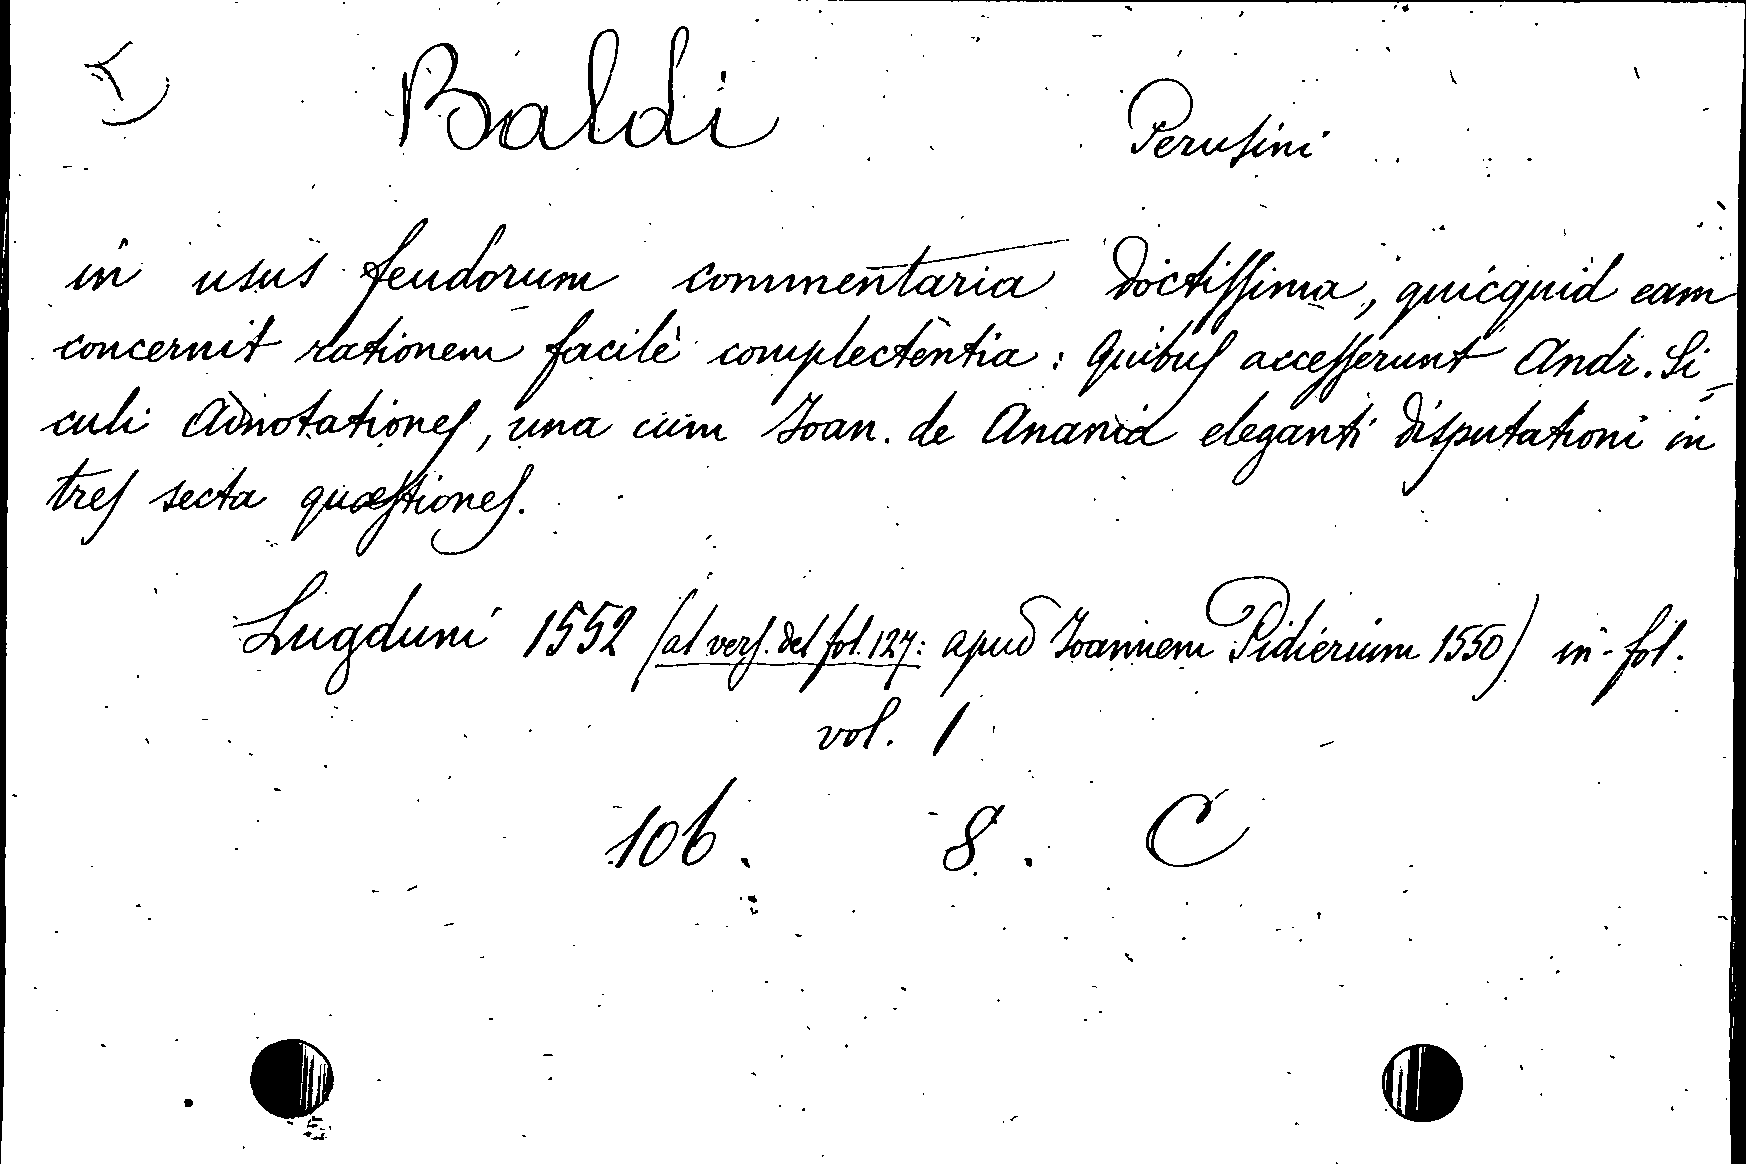 Baldi Perusini
in usus feudorum commentaria doctissima, quicquid eam
concernit rationem facilè complectentia: Quibus accesserunt Andr. Si-
culi Adnotationes, una cum Ioan. de Anania eleganti disputationi in
tres secta quæstiones.
Lugduni 1552 (al vers. del fol. 127: apud Ioannem Pidierium 1550) in-fol.
vol. 1
106. 8. C